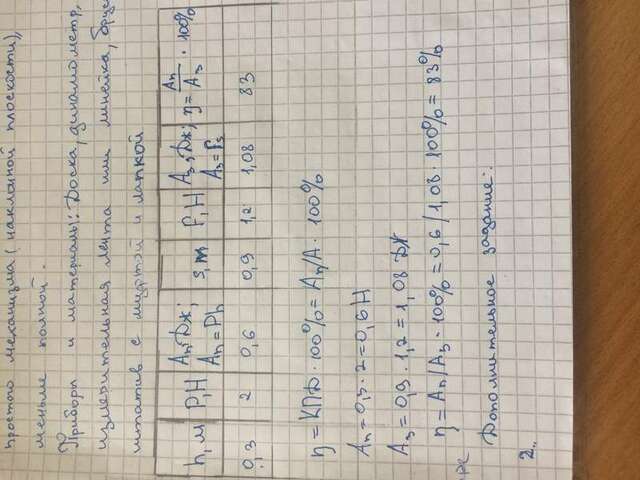 простого механизма (наклонной плоскости),
меньше полной.
Приборы и материалы: Доска, динамометр,
измерительная лента или линейка, брусок
штатив с муфтой и лапкой
h, м P, Н Aп, Дж; Aп = Ph s, м F, Н Aз, Дж; Aз = Fs η = Aп/Aз · 100%
0,3 2 0,6 0,9 1,2 1,08 83
η = КПД · 100% = Aп/A · 100%
Aп = 0,3 · 2 = 0,6 Н
Aз = 0,9 · 1,2 = 1,08 Дж
η = Aп/Aз · 100% = 0,6/1,08 · 100% = 83%
Дополнительное задание:
2.